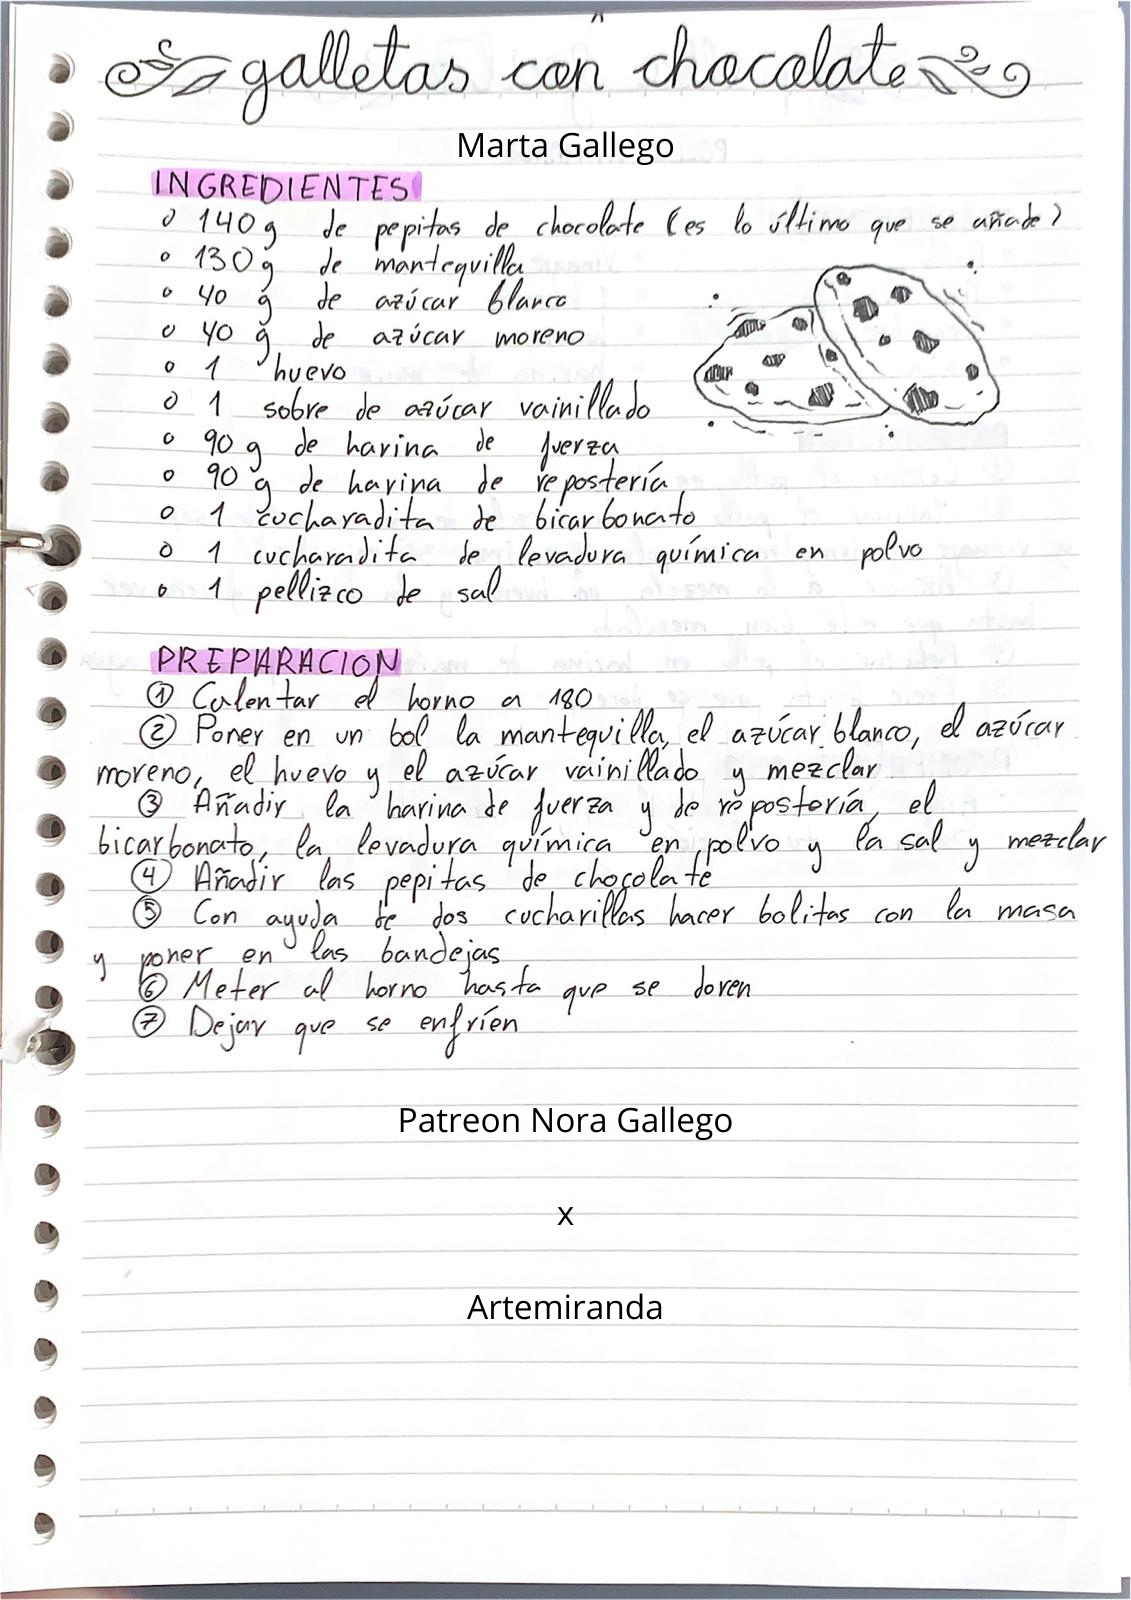 galletas con chocolate
Marta Gallego
INGREDIENTES
o 140g de pepitas de chocolate (es lo último que se añade)
o 130g de mantequilla
o 40 g de azúcar blanco
o 40 g de azúcar moreno
o 1 huevo
o 1 sobre de azúcar vainillado
o 90 g de harina de fuerza
o 90 g de harina de repostería
o 1 cucharadita de bicarbonato
o 1 cucharadita de levadura química en polvo
o 1 pellizco de sal
PREPARACION
① Calentar el horno a 180
② Poner en un bol la mantequilla, el azúcar blanco, el azúcar
moreno, el huevo y el azúcar vainillado y mezclar
③ Añadir la harina de fuerza y de repostería, el
bicarbonato, la levadura química en polvo y la sal y mezclar
④ Añadir las pepitas de chocolate
⑤ Con ayuda de dos cucharillas hacer bolitas con la masa
y poner en las bandejas
⑥ Meter al horno hasta que se doren
⑦ Dejar que se enfríen
Patreon Nora Gallego
x
Artemiranda